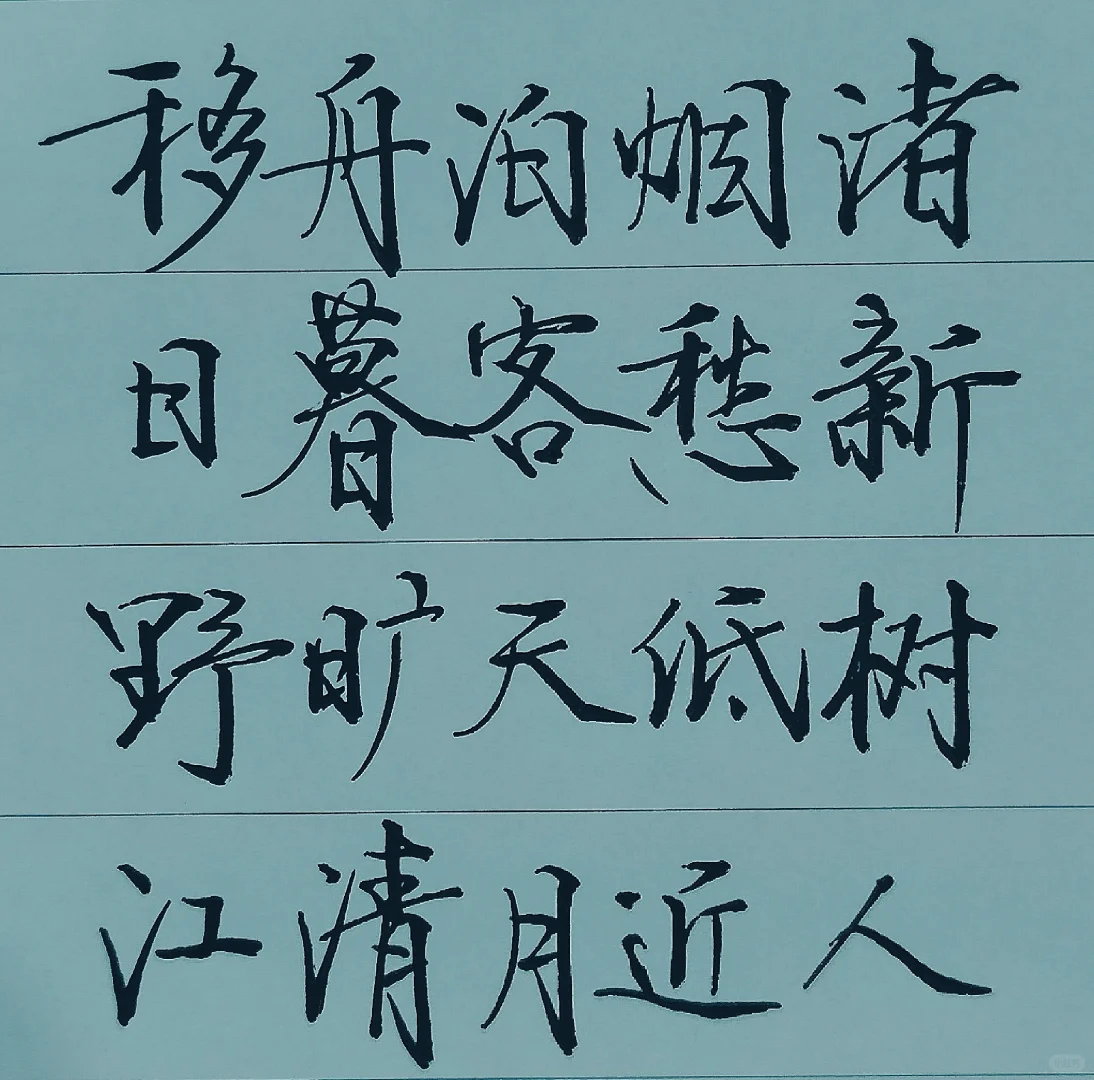 移舟泊烟渚
日暮客愁新
野旷天低树
江清月近人